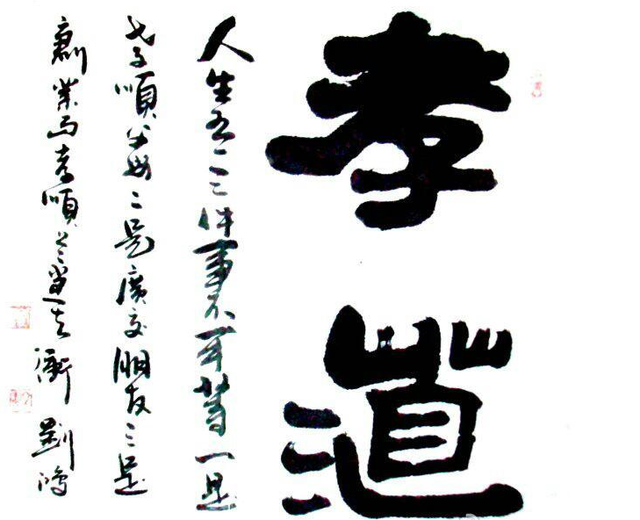 孝道
人生三件事不可等一是
孝順父母二是廣交朋友三是
創業与孝順